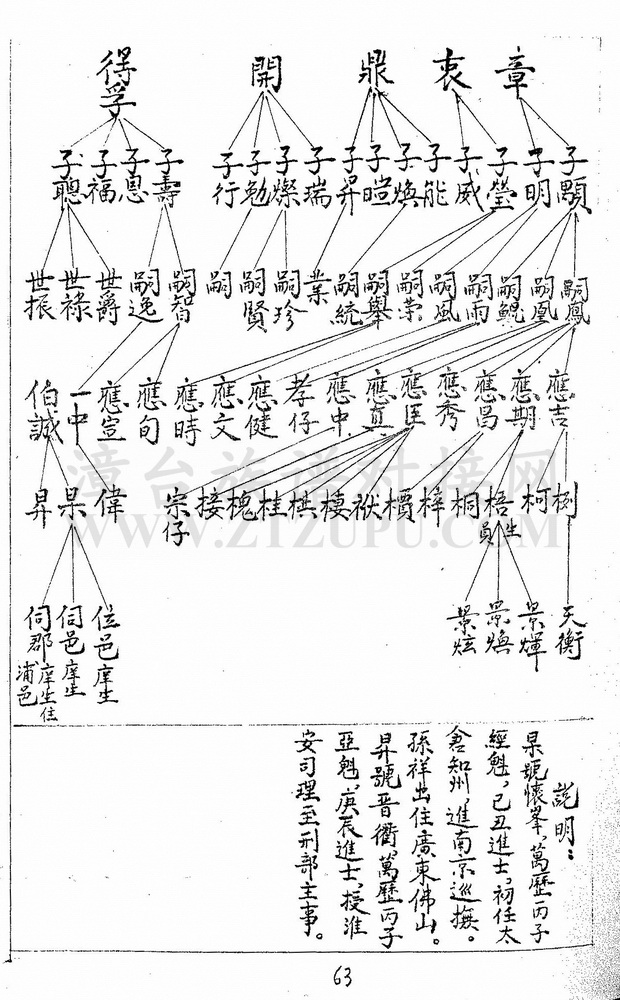 章 衷 鼎 開 得孚
子顯 子明 子瑩 子威 子能 子煥 子暟 子昇 子瑞 子燦 子勉 子行 子壽 子恩 子福 子聰
嗣鳳 嗣凰 嗣鯤 嗣雨 嗣風 嗣榮 嗣舉 嗣統 業 嗣珍 嗣賢 嗣 嗣智 嗣逸 世爵 世祿 世振
應吉 應期 應昌 應秀 應匡 應真 應中 孝仔 應健 應文 應時 應旬 應宣 一中 伯誠
柯 梧生員 桐 梓 檟 棲 棋 桂 槐 接 宗仔 偉 杲 昇
天衡 景輝 景煥 景炫 位邑庠生 伺邑庠生 伺郡庠生住浦邑
說明：
杲號懷峯，萬歷丙子
經魁，己丑進士，初任太
倉知州，進南京巡撫。
孫祥出住廣東佛山。
昇號晋衢，萬歷丙子
亞魁，庚辰進士，授淮
安司理至刑部主事。
漳台族谱对接网
WWW.ZTZUPU.COM
63